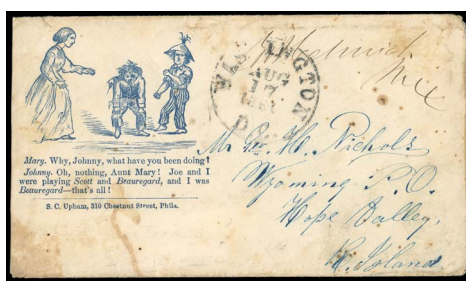 Mary. Why, Johnny, what have you been doing?
Johnny. Oh, nothing, Aunt Mary! Joe and I
were playing Scott and Beauregard, and I was
Beauregard—that's all!
S. C. Upham, 310 Chestnut Street, Phila.
WASHINGTON
AUG
17
D
Mr Geo. H. Nichols
Wyoming P.O.
Hope Valley,
R. Island